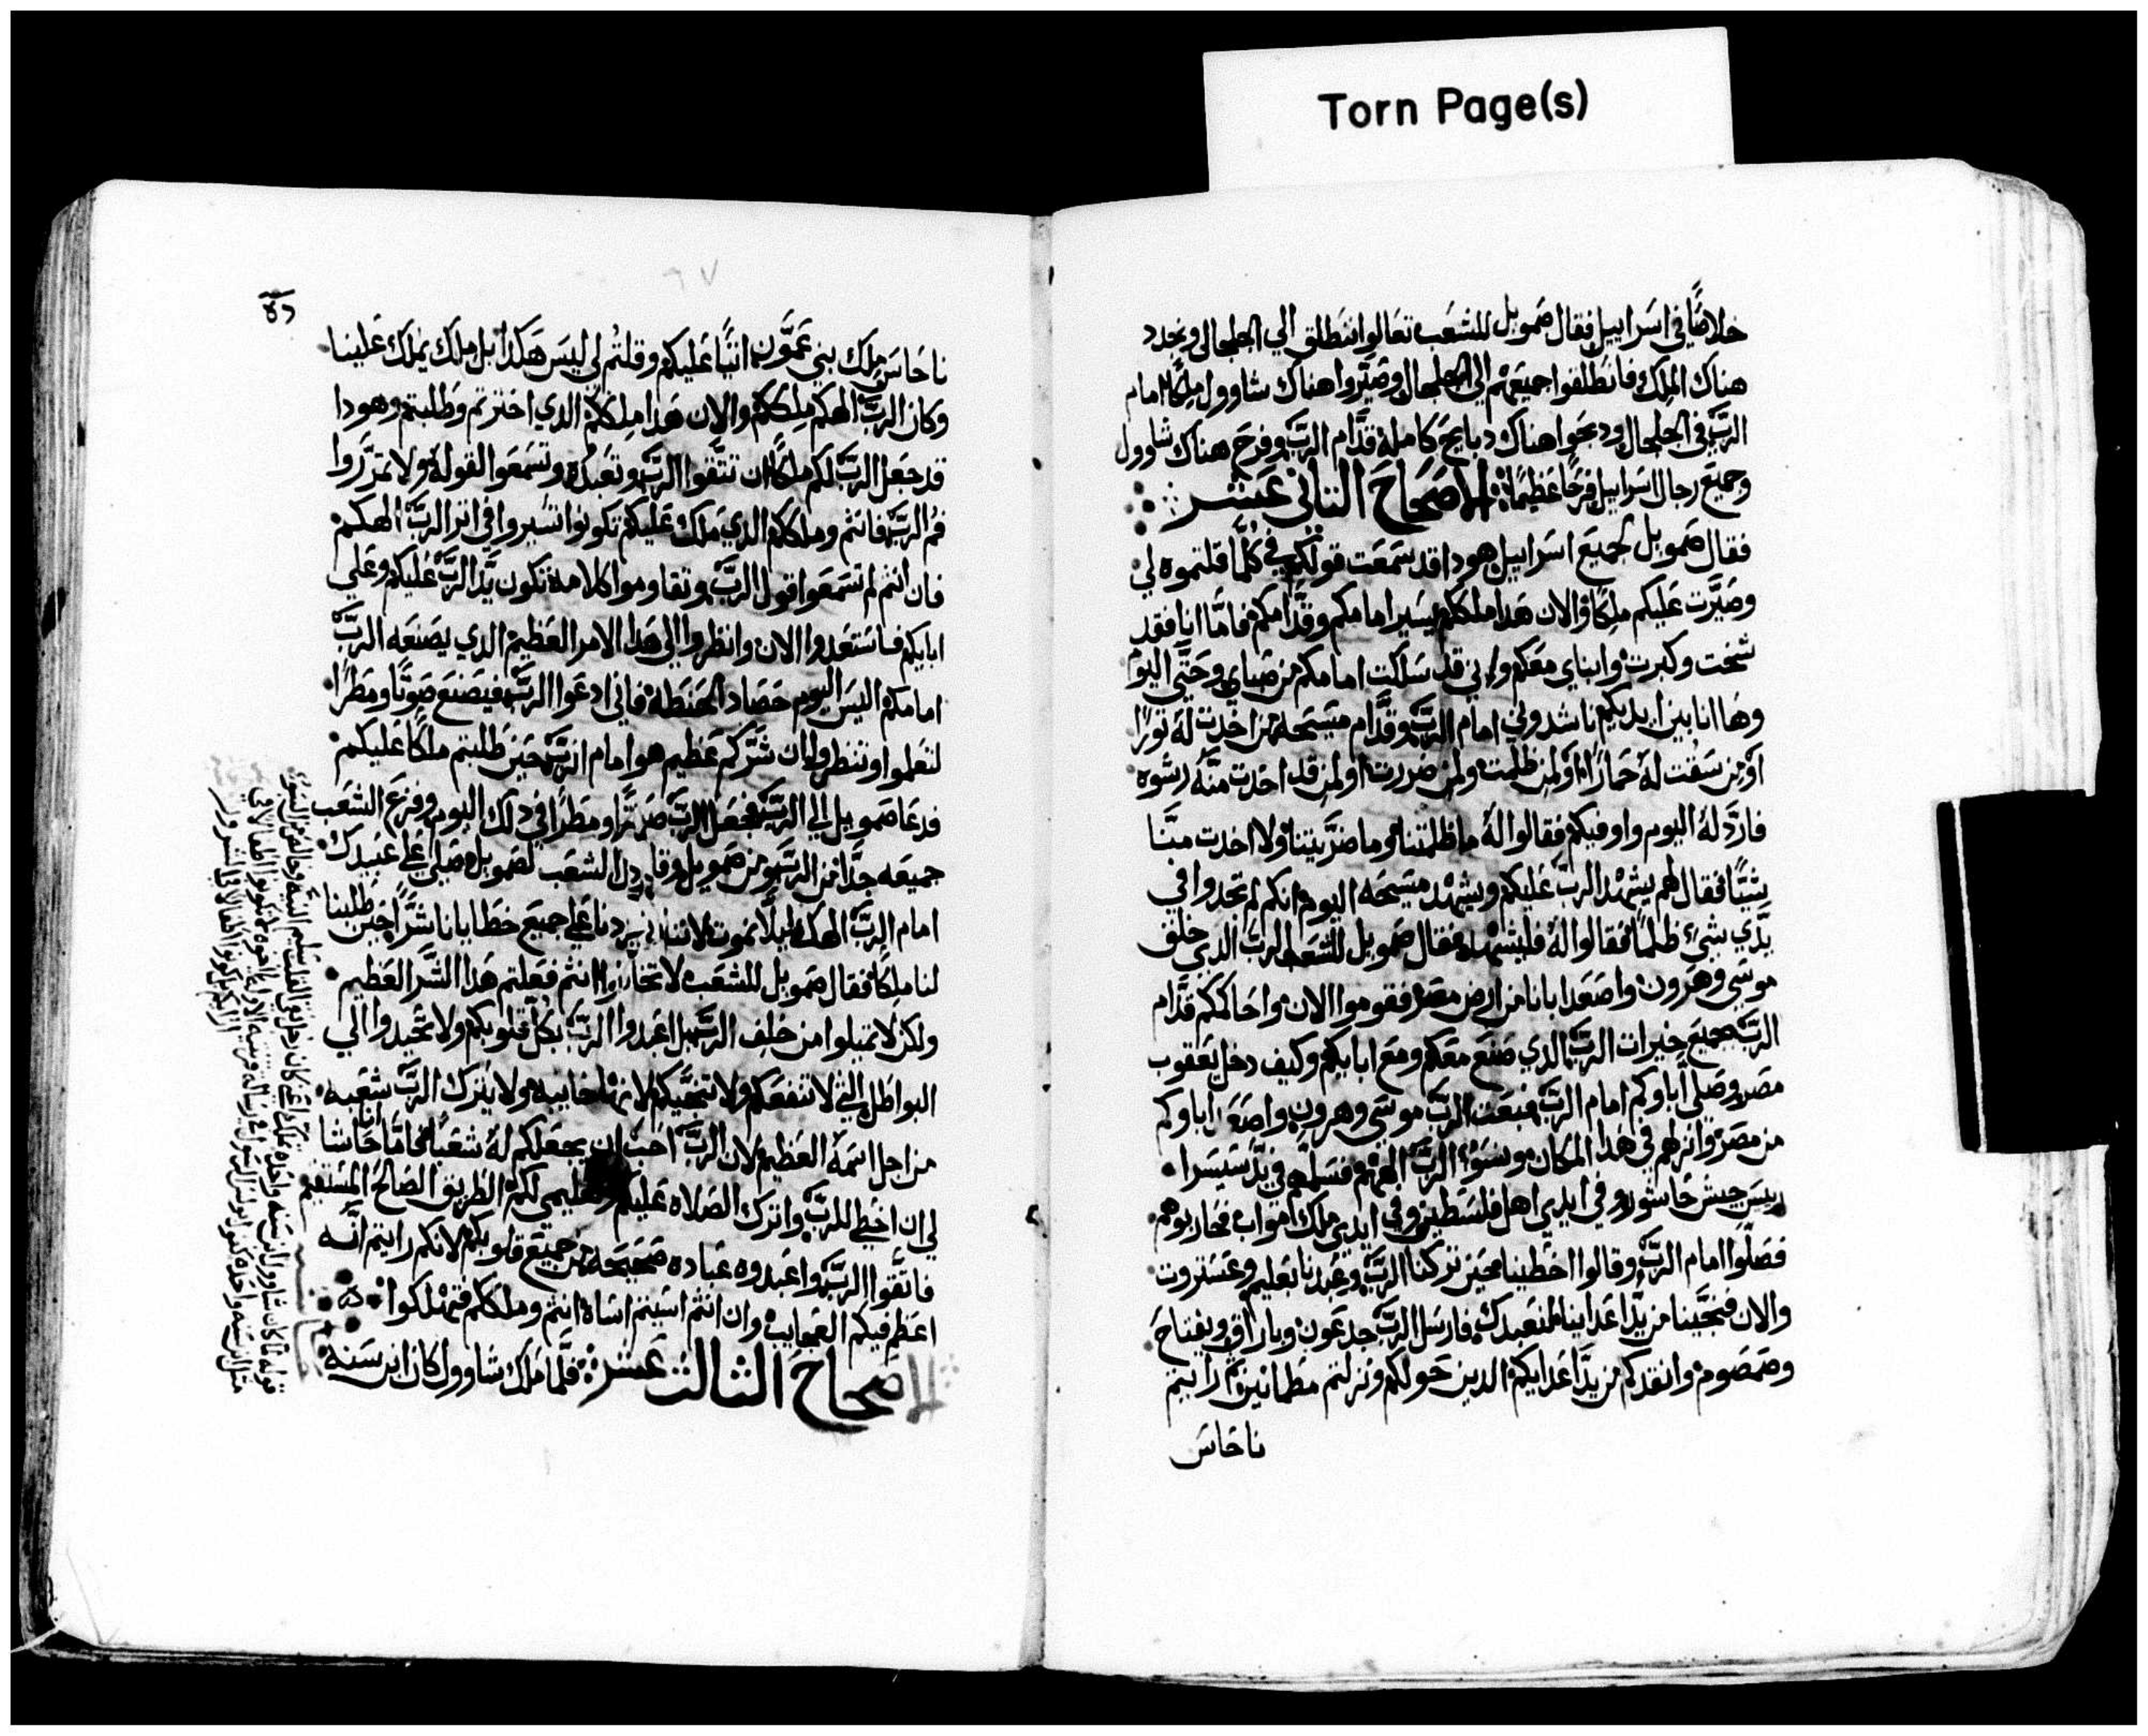 Torn Page(s)
خلاصًا في اسراييل فقال صمويل للشعب تعالوا ننطلق الي الجلجال ونجدد
هناك الملك فانطلقوا جميعهم الي الجلجال وصيّروا هناك شاوول ملكًا امام
الربّ في الجلجال ودبحوا هناك دبايح كاملة قدّام الربّ وفرح هناك شاوول
وجميع رجال اسراييل فرحًا عظيمًا الاصحاح الثاني عشر
فقال صمويل لجميع اسراييل هودا قد سمعت قولكم في كلّما قلتموه لي
وصيّرت عليكم ملكًا والان هدا ملككم يسير امامكم وقدّامكم فامّا انا فقد
شخت وكبرت وابناي معكم واني قد سلكت امامكم من صباي وحتّي اليوم
وها انا بين ايديكم ناشدوني امام الربّ وقدّام مسيحه من اخدت له ثورًا
او من سقت له حمارًا او لمن ظلمت ولمن ضررت او لمن قد اخدت منّه رشوه
فاردّ له اليوم واوفيكم فقالوا له ما ظلمتنا وما ضرّيتنا ولا اخدت منّا
شيًّا فقال لهم يشهد الربّ عليكم ويشهد مسيحه اليوم انكم لم تجدوا في
يدّي شيء ظلمًا فقالوا له فليشهد فقال صمويل للشعب الربّ الدي خلق
موسي وهرون واصعد ابانا من ارض مصر فقوموا الان واحاكمكم قدّام
الربّ بجميع خيرات الربّ الدي صنع معكم ومع ابايكم وكيف دخل يعقوب
مصر وصلي اباوكم امام الربّ فبعث الربّ موسي وهرون واصعد اباوكم
من مصر وانزلهم في هدا المكان ونسوا الربّ الههم فسلمهم في يدّ سيسرا
رييس جيش حاشور وفي ايدي اهل فلسطين وفي ايدي ملك امواب فحاربوهم
فصلّوا امام الربّ وقالوا اخطينا حين تركنا الربّ وعبدنا بعليم وعستروت
والان فنجّينا من يدّ اعداينا لنعبدك فارسل الربّ جدعون وباراق ويفتاح
وصمصوم وانقدكم من يدّ اعدايكم الدين حولكم ونزلتم مطمانين ثم رايتم
ناحاس
ناحاس ملك بني عمّون اتيًا عليكم وقلتم لي ليس هكدا بل ملك يملك علينا
وكان الربّ الهكم ملككم والان هدا ملككم الدي اخترتم وطلبتم وهودا
قد جعل الربّ لكم ملكًا ان تتّقوا الربّ وتعبدوه وتسمعوا لقوله ولا تمرّروا
فم الربّ فانتم وملككم الدي ملك عليكم تكونوا تسيروا في اثر الربّ الهكم
فان انتم لم تسمعوا قول الربّ وتقاوموا كلامه تكون يدّ الربّ عليكم وعلي
ابايكم فاستعدوا الان وانظروا الي هدا الامر العظيم الدي يصنعه الربّ
امامكم اليس اليوم حصاد الحنطة فاني ادعوا الربّ فيصنع صوتًا ومطرًا
لتعلموا وتنظروا ان شرّكم عظيم هو امام الربّ حين طلبتم ملكًا عليكم
فدعا صمويل الي الربّ فجعل الربّ ومطرًا في دلك اليوم وفزع الشعب
جميعه جدًّا من الربّ ومن صمويل وقال كل الشعب لصمويل صلي علي عبيدك
امام الربّ الهك ليلّا نموت لاننا زدنا علي جميع خطايانا شرًّا حين طلبنا
لنا ملكًا فقال صمويل للشعب لا تخافوا انتم فعلتم هدا الشّر العظيم
ولكن لا تميلوا من خلف الربّ بل اعبدوا الربّ بكلّ قلوبكم ولا تحيدوا الي
البواطل التي لا تنفعكم ولا تنجّيكم لانها خايبه ولا يترك الربّ شعبه
من اجل اسمه العظيم لان الربّ احبّ ان يجعلكم له شعبًا فامّا انا حاشا
لي ان اخطي للربّ واترك الصلاه عليكم لكم الطريق الصالح المستقيم
فاتّقوا الربّ واعبدوه عباده صحيحة من جميع قلوبكم لانكم رايتم انّه
اعظم فيكم العجايب وان انتم اسيتم اساة انتم وملككم فتهلكوا
الاصحاح الثالث عشر فلّما ملك شاوول كان ابن سنه